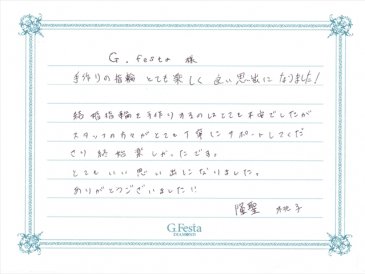 G.festa 様
手作りの指輪 とても楽しく 良い思出になりました!
結婚指輪を手作りするのはとても不安でしたが
スタッフの方々がとても丁寧にサポートしてくだ
さり終始楽しかったです。
とてもいい思い出しになりました。
ありがとうございました!!
桃子
G.Festa
DIAMOND